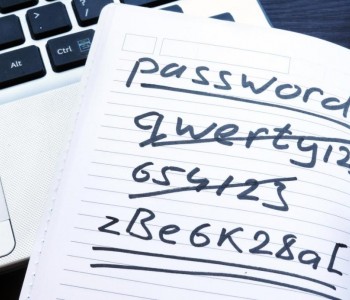 Alt
Ctrl
password
qwerty12
654123
zBe6K28a[